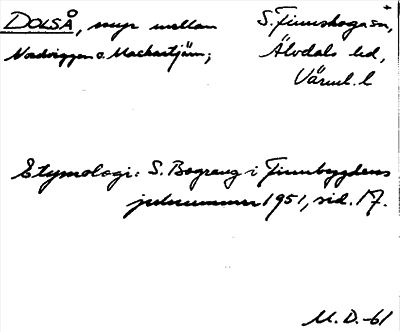 DOLSÅ, myr mellan
Nordriggen o. Mackartjärn;
S. Finnskoga sn,
Älvdals hd,
Värml. l
Etymologi: S. Bograng i Finnbygdens
julnummer 1951, sid. 17.
M. D. -61